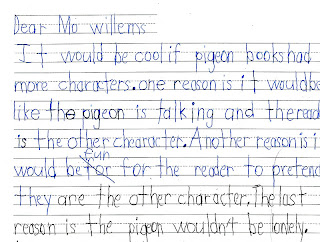 Dear Mo willems
It would be cool if pigeon books had
more characters. one reason is it would be
like the pigeon is talking and the read
is the other chearacter. Another reason is i
fun
would be for for the reader to pretend
they are the other character. The last
reason is the pigeon wouldn't be lonlely.